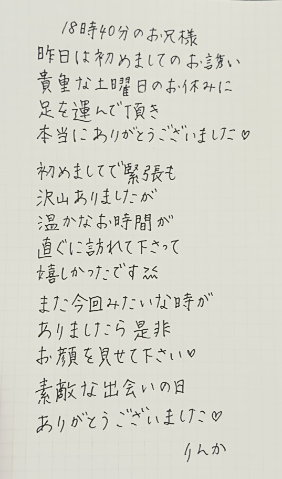 18時40分のお兄様
昨日は初めましてのお誘い
貴重な土曜日のお休みに
足を運んで頂き
本当にありがとうございました♡
初めましてで緊張も
沢山ありましたが
温かなお時間が
直ぐに訪れて下さって
嬉しかったです
また今回みたいな時が
ありましたら是非
お顔を見せて下さい♡
素敵な出会いの日
ありがとうございました♡
りんか